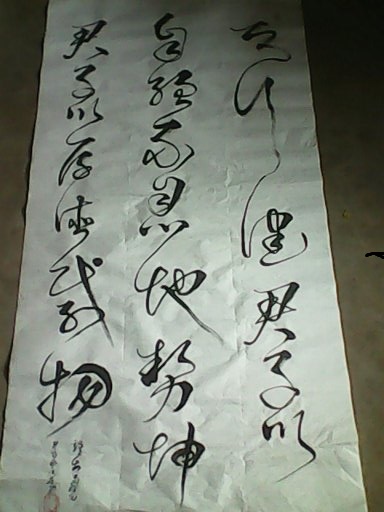 天行健君子以
自强不息地势坤
君子以厚德载物